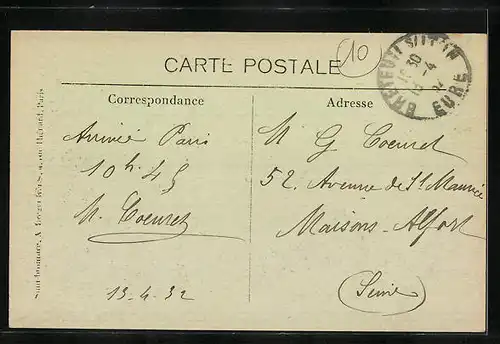 10
CARTE POSTALE
BRETEUIL S/ ITON
EURE
Correspondance
Adresse
Arrivée Paris
10h.45
M. Coeuret
13.4.32
M G Coeuret
52, Avenue de St Maurice
Maisons-Alfort
(Seine)